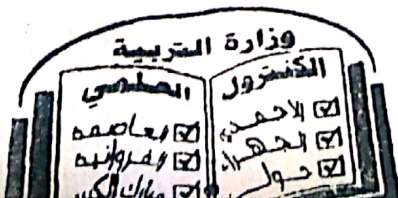 وزارة التربية
الكنترول العلمي
☑ الاحمدي
☑ الجهراء
☑ حولي
☑ العاصمة
☑ الفروانية
☑ مبارك الكبير